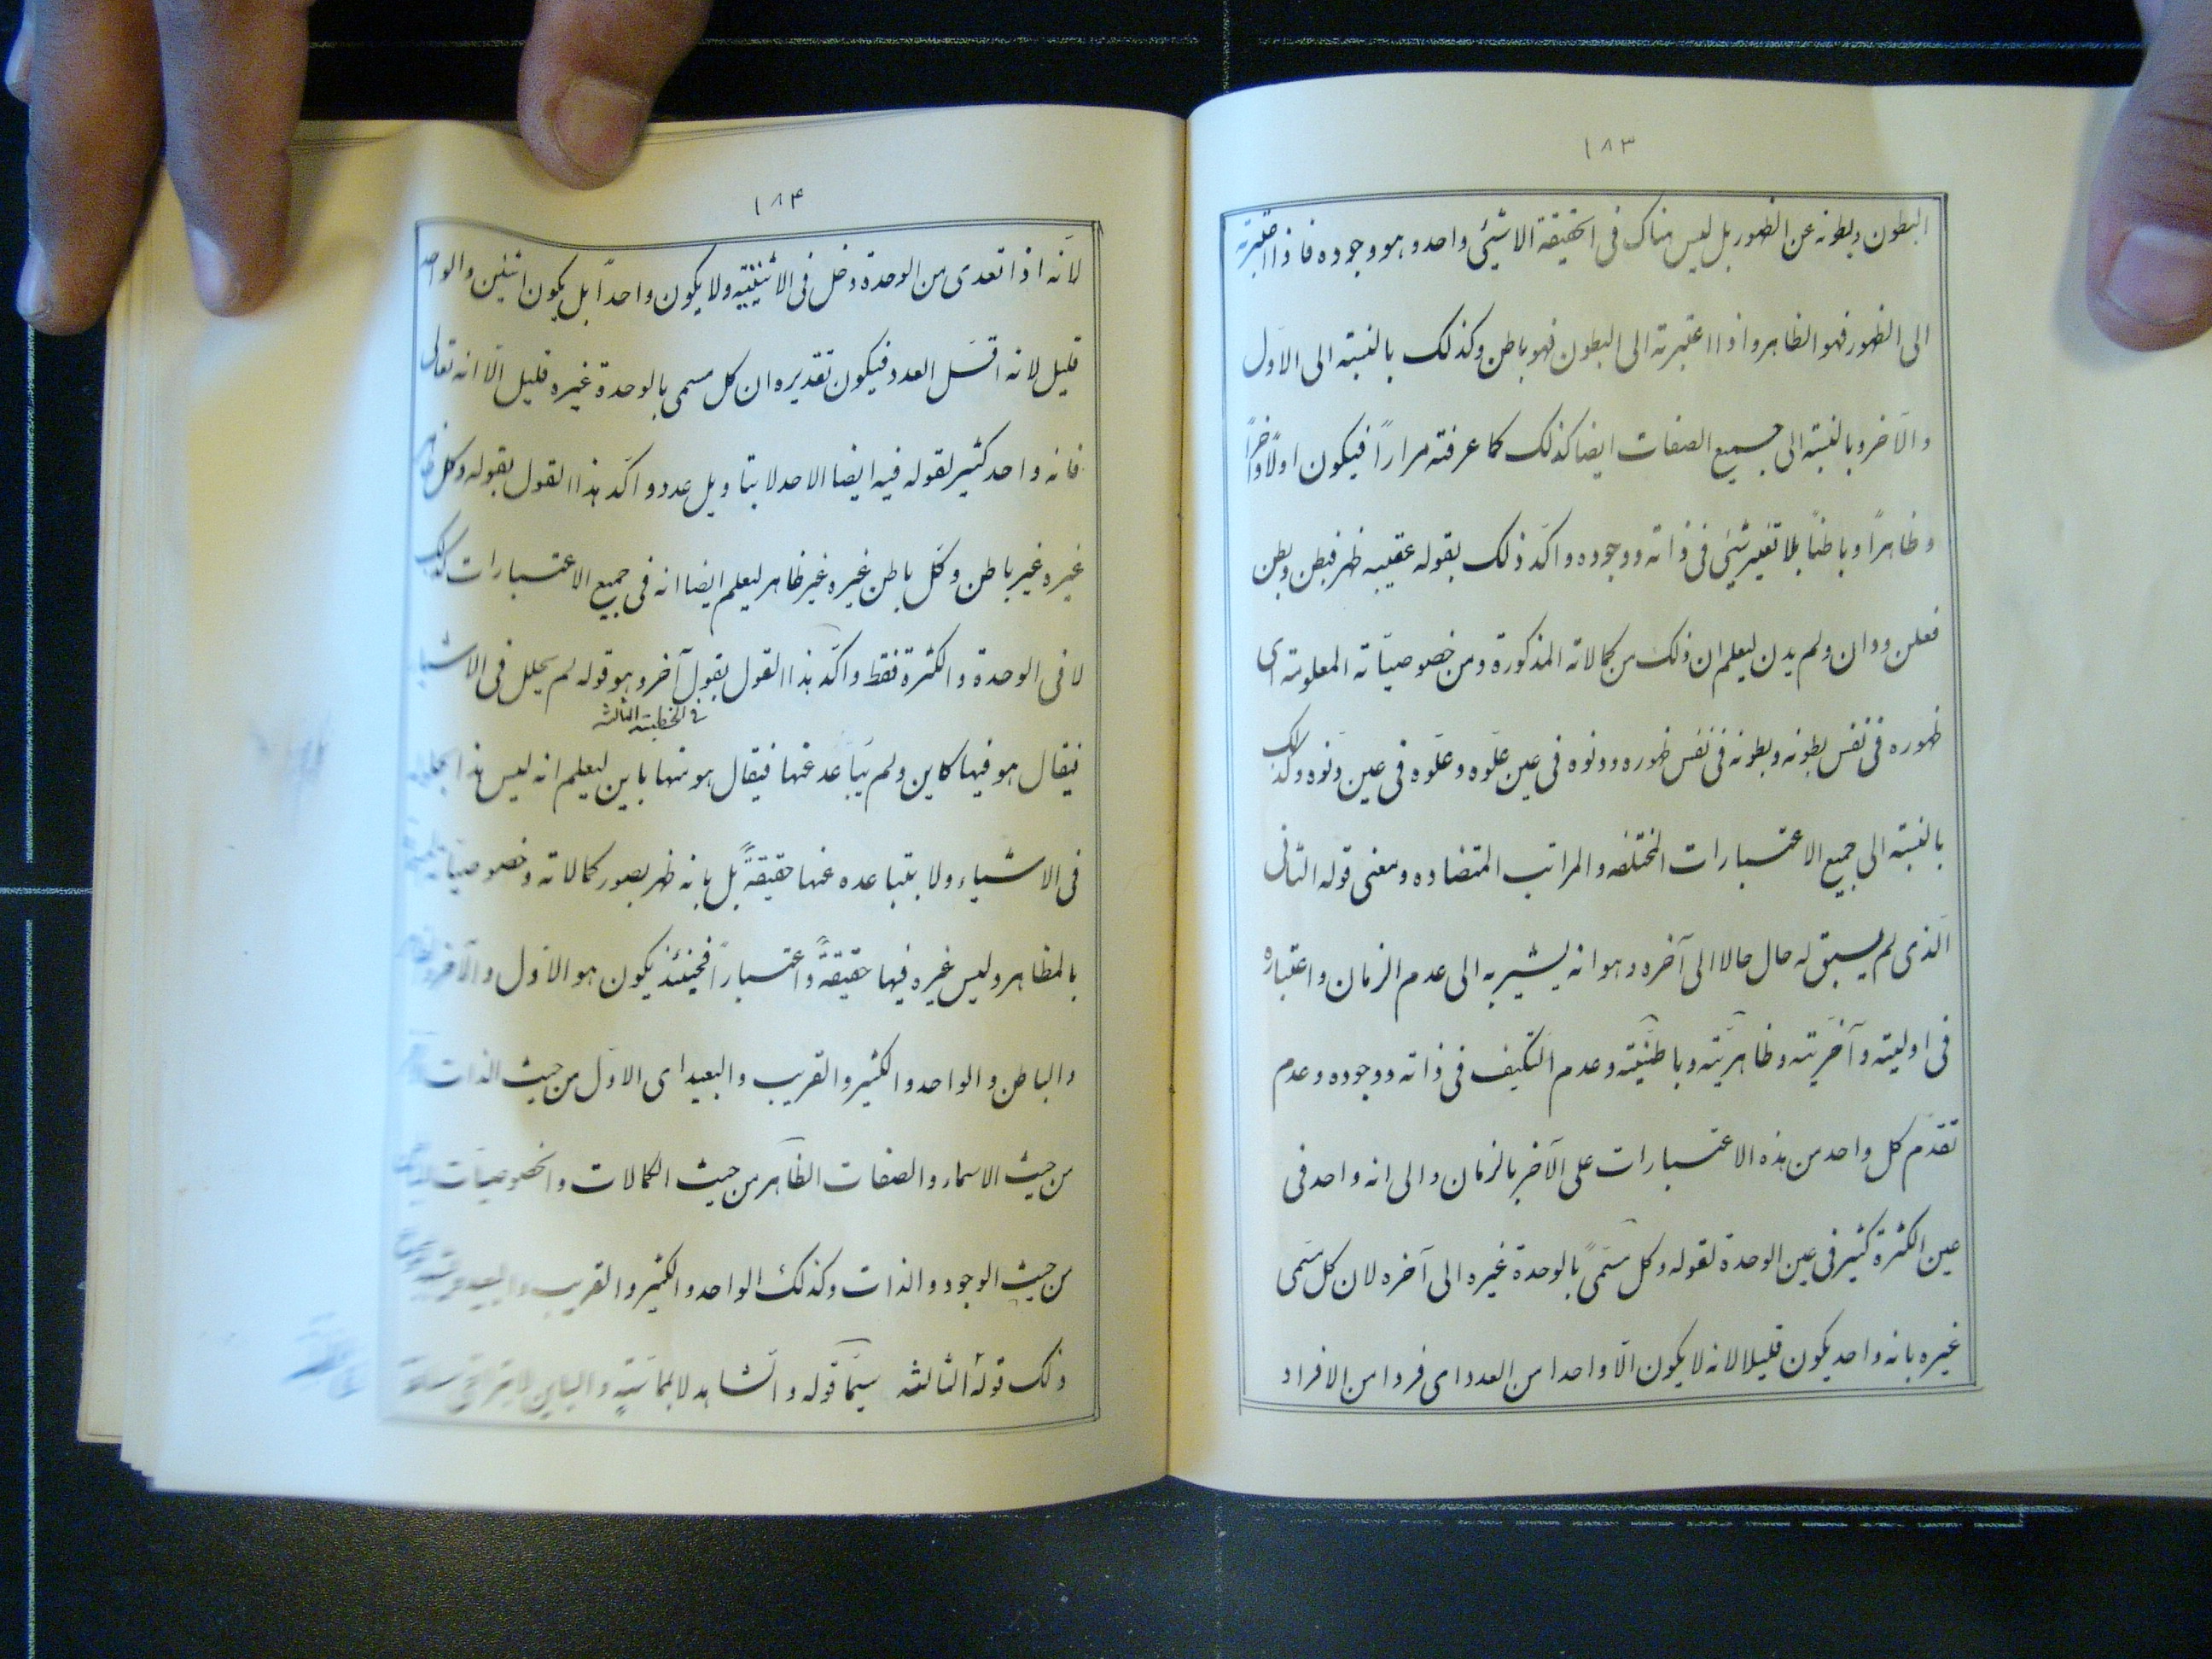 ١٨٣
البطون وبطونه عن الظهور بل ليس هناك فى الحقيقة الا شيئى واحد و هو وجوده فاذا اعتبرته
الى الظهور فهو الظاهر واذا اعتبرته الى البطون فهو باطن وكذلك بالنسبة الى الاوّل
والآخر وبالنسبة الى جميع الصفات ايضا كذلك كما عرفته مراراً فيكون اولاً وآخراً
وظاهراً وباطناً بلا تغير شيئى فى ذاته ووجوده واكّد ذلك بقوله عقيبه ظهر فبطن وبطن
فعلن ودان ولم يدن ليعلم ان ذلك من كمالاته المذكورة ومن خصوصيّاته المعلومة اى
ظهوره فى نفس بطونه وبطونه فى نفس ظهوره ودنوه فى عين علّوه وعلّوه فى عين دنوه وكذلك
بالنسبة الى جميع الاعتبارات المختلفه والمراتب المتضاده ومعنى قوله الثانى
الّذى لم يسبق له حال حالا الى آخره وهو انه يشير به الى عدم الزمان واعتباره
فى اوليته وآخريته وظاهريّته وباطنيّته وعدم التكيف فى ذاته ووجوده وعدم
تقدّم كل واحد من هذه الاعتبارات على الآخر بالزمان والى انه واحد فى
عين الكثرة كثير فى عين الوحدة لقوله وكل مسمّىً بالوحدة غيره الى آخره لان كل مسمى
غيره بانه واحد يكون قليلا لانه لا يكون الّا واحدا من العدد اى فردا من الافراد
١٨٤
لانّه اذا تعدى من الوحدة دخل فى الاثنينيّه ولا يكون واحداً بل يكون اثنين والواحد
قليل لانه اقل العدد فيكون تقديره ان كل مسمى بالوحدة غيره قليل الّا انه تعالى
فانه واحد كثير لقوله فيه ايضا الاحد لا بتاويل عدد واكّد هذا القول بقوله وكل ظاهر
غيره غير باطن وكل باطن غيره غير ظاهر ليعلم ايضا انه فى جميع الاعتبارات كذلك
لا فى الوحدة والكثرة فقط واكّد هذا القول بقول آخر وهو قوله لم يحلل فى الاشياء
فى الخطبة الثالثه
فيقال هو فيها كاين ولم يتباعد عنها فيقال هو منها باين ليعلم انه ليس هذا بحلوله
فى الاشياء ولا بتباعده عنها حقيقةً بل بانه ظهر بصور كمالاته وخصوصيّاته
بالمظاهر وليس غيره فيها حقيقةً واعتباراً فحينئذ يكون هو الاوّل والآخر والظاهر
والباطن والواحد والكثير والقريب والبعيد اى الاوّل من حيث الذات
من حيث الاسماء والصفات الظّاهر من حيث الكمالات والخصوصيّات
من حيث الوجود والذات وكذلك الواحد والكثير والقريب والبعيد
ذلك قوله الثالثه سيّما قوله والشاهد لا بمماسّةٍ والباين لا بتراخى مسافة